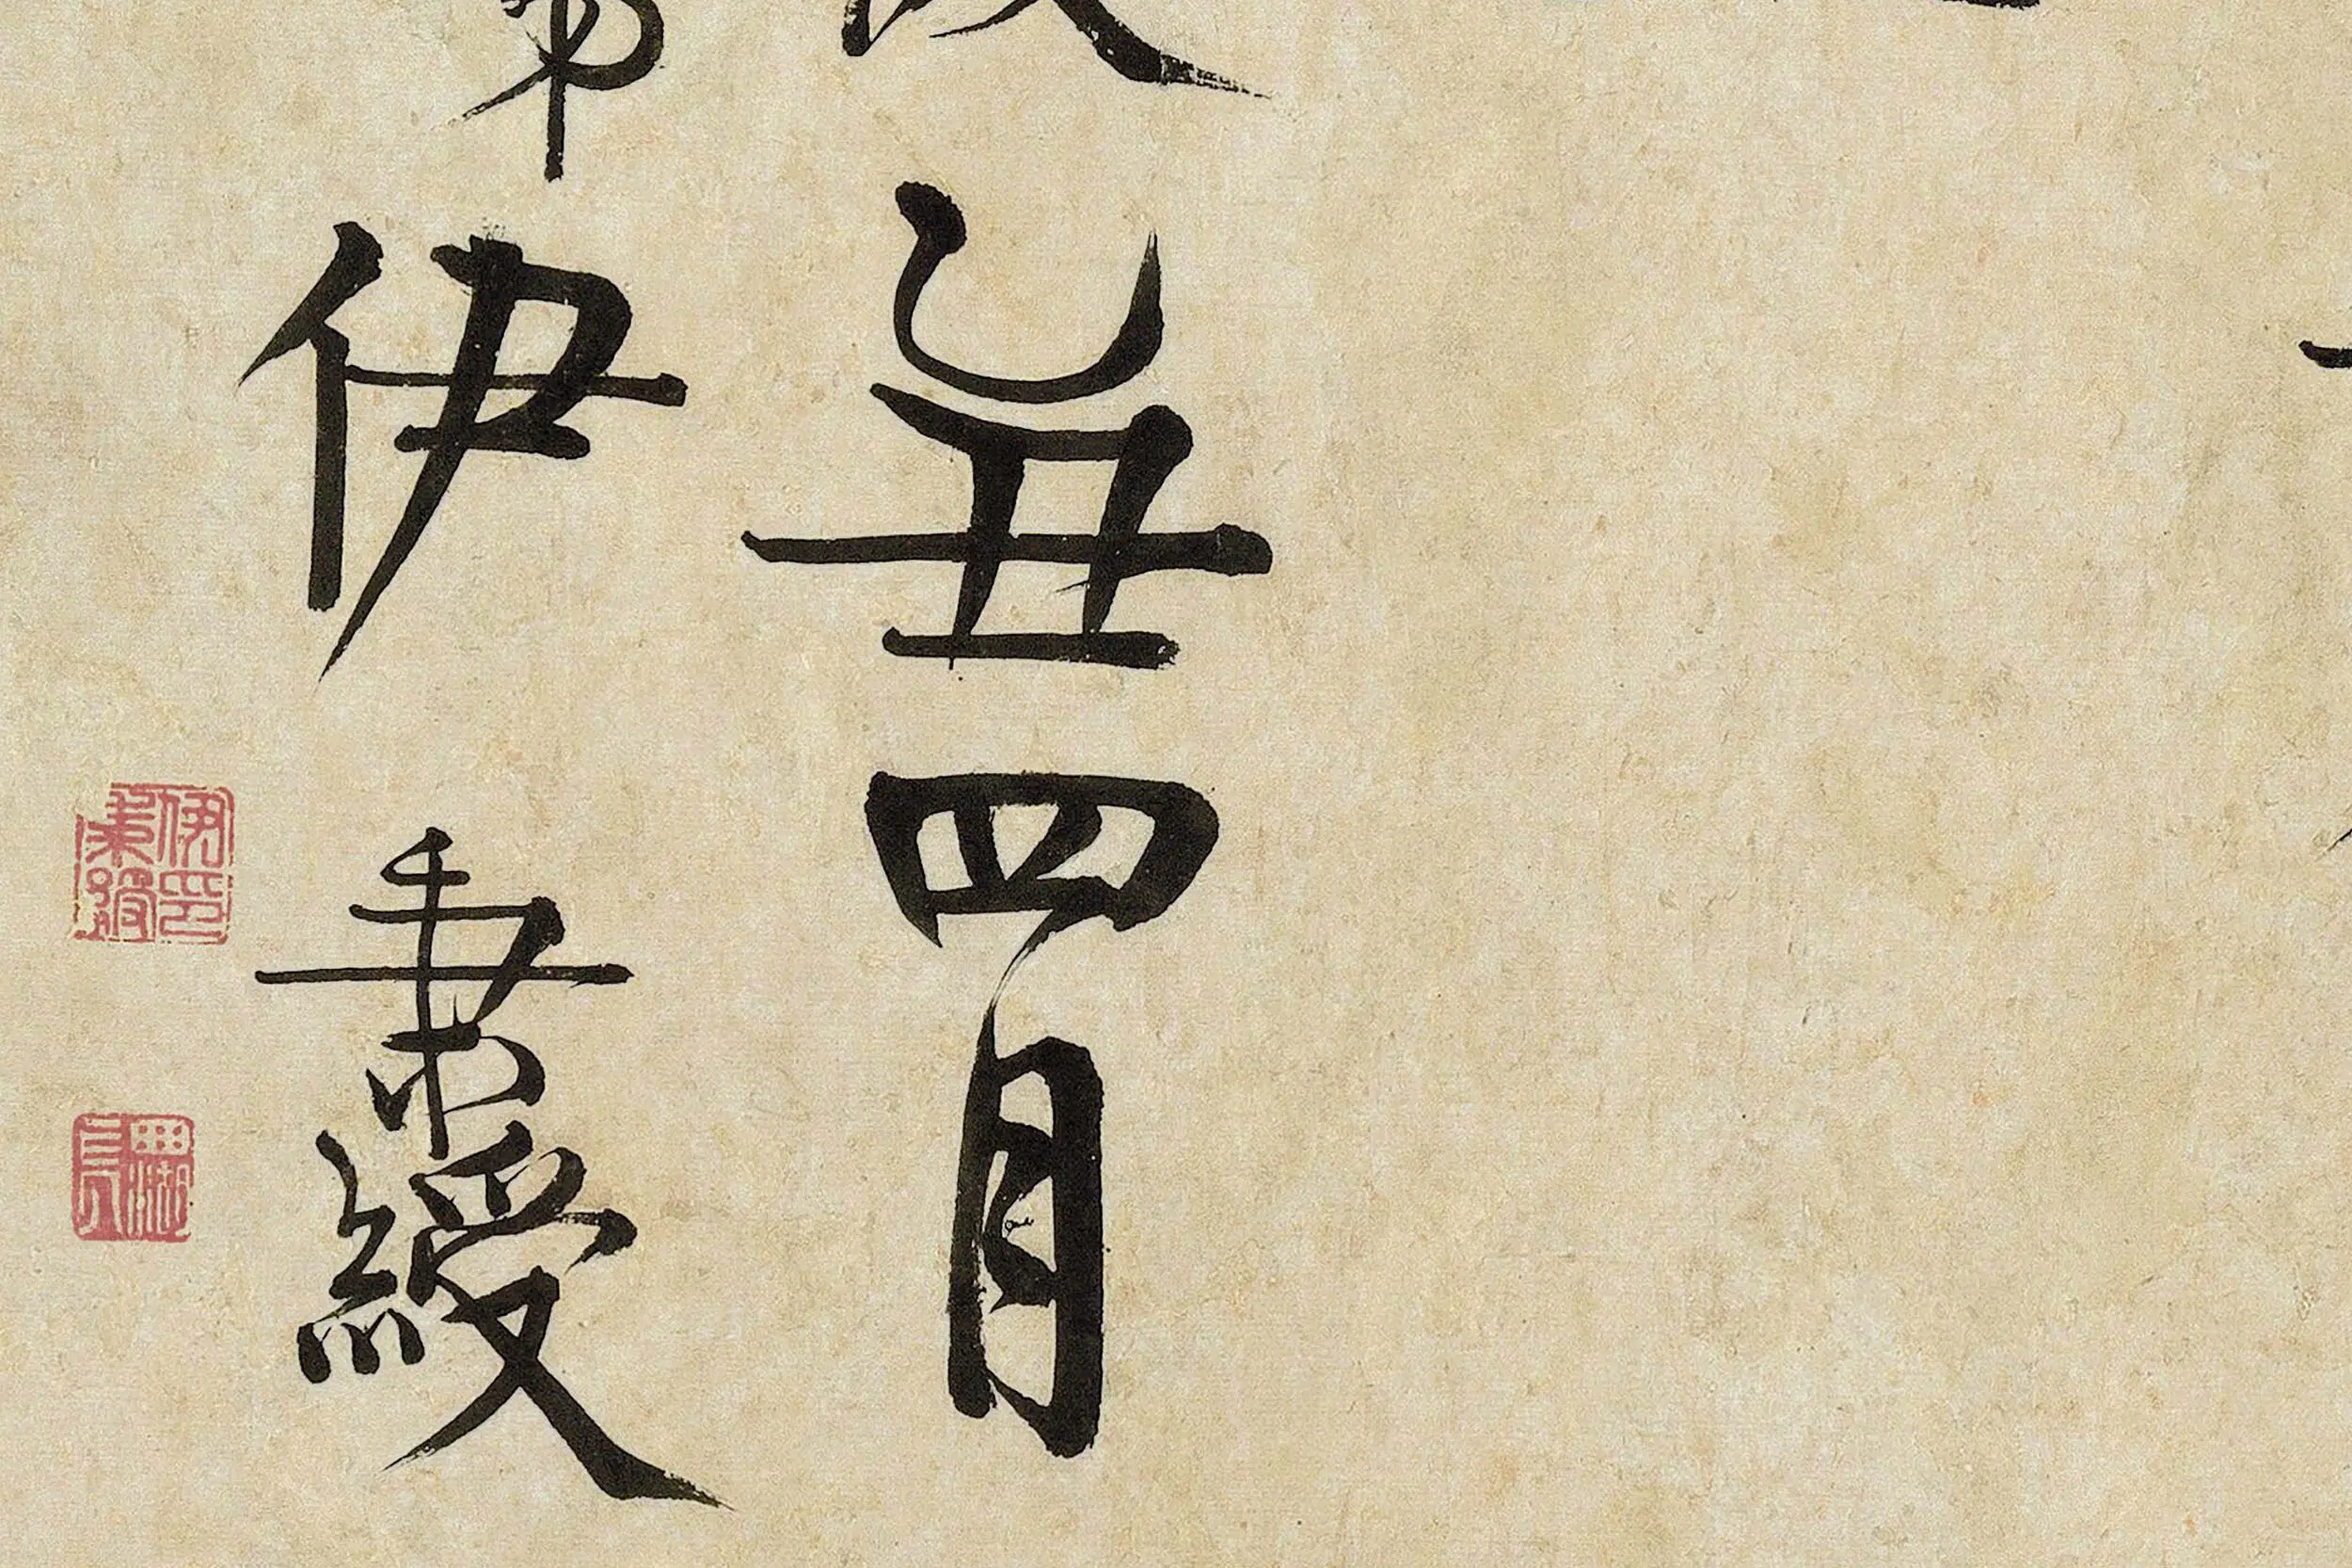 乙丑四月
伊秉綬
伊印
秉綬